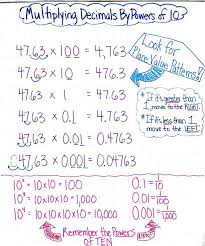 Multiplying Decimals By Powers of 10
47.63 x 100 = 4,763
47.63 x 10 = 476.3
47.63 x 1 = 47.63
47.63 x 0.1 = 4.763
47.63 x 0.01 = 0.4763
47.63 x 0.001 = 0.04763
Look for
Place Value Patterns!
* If it's greater than
1, move to the RIGHT.
* If it's less than
1, move to the LEFT.
10² = 10x10 = 100
10³ = 10x10x10 = 1,000
10⁴ = 10x10x10 = 10,000
0.1 = 1/10
0.01 = 1/100
0.001 = 1/1000
Remember the Powers
of TEN